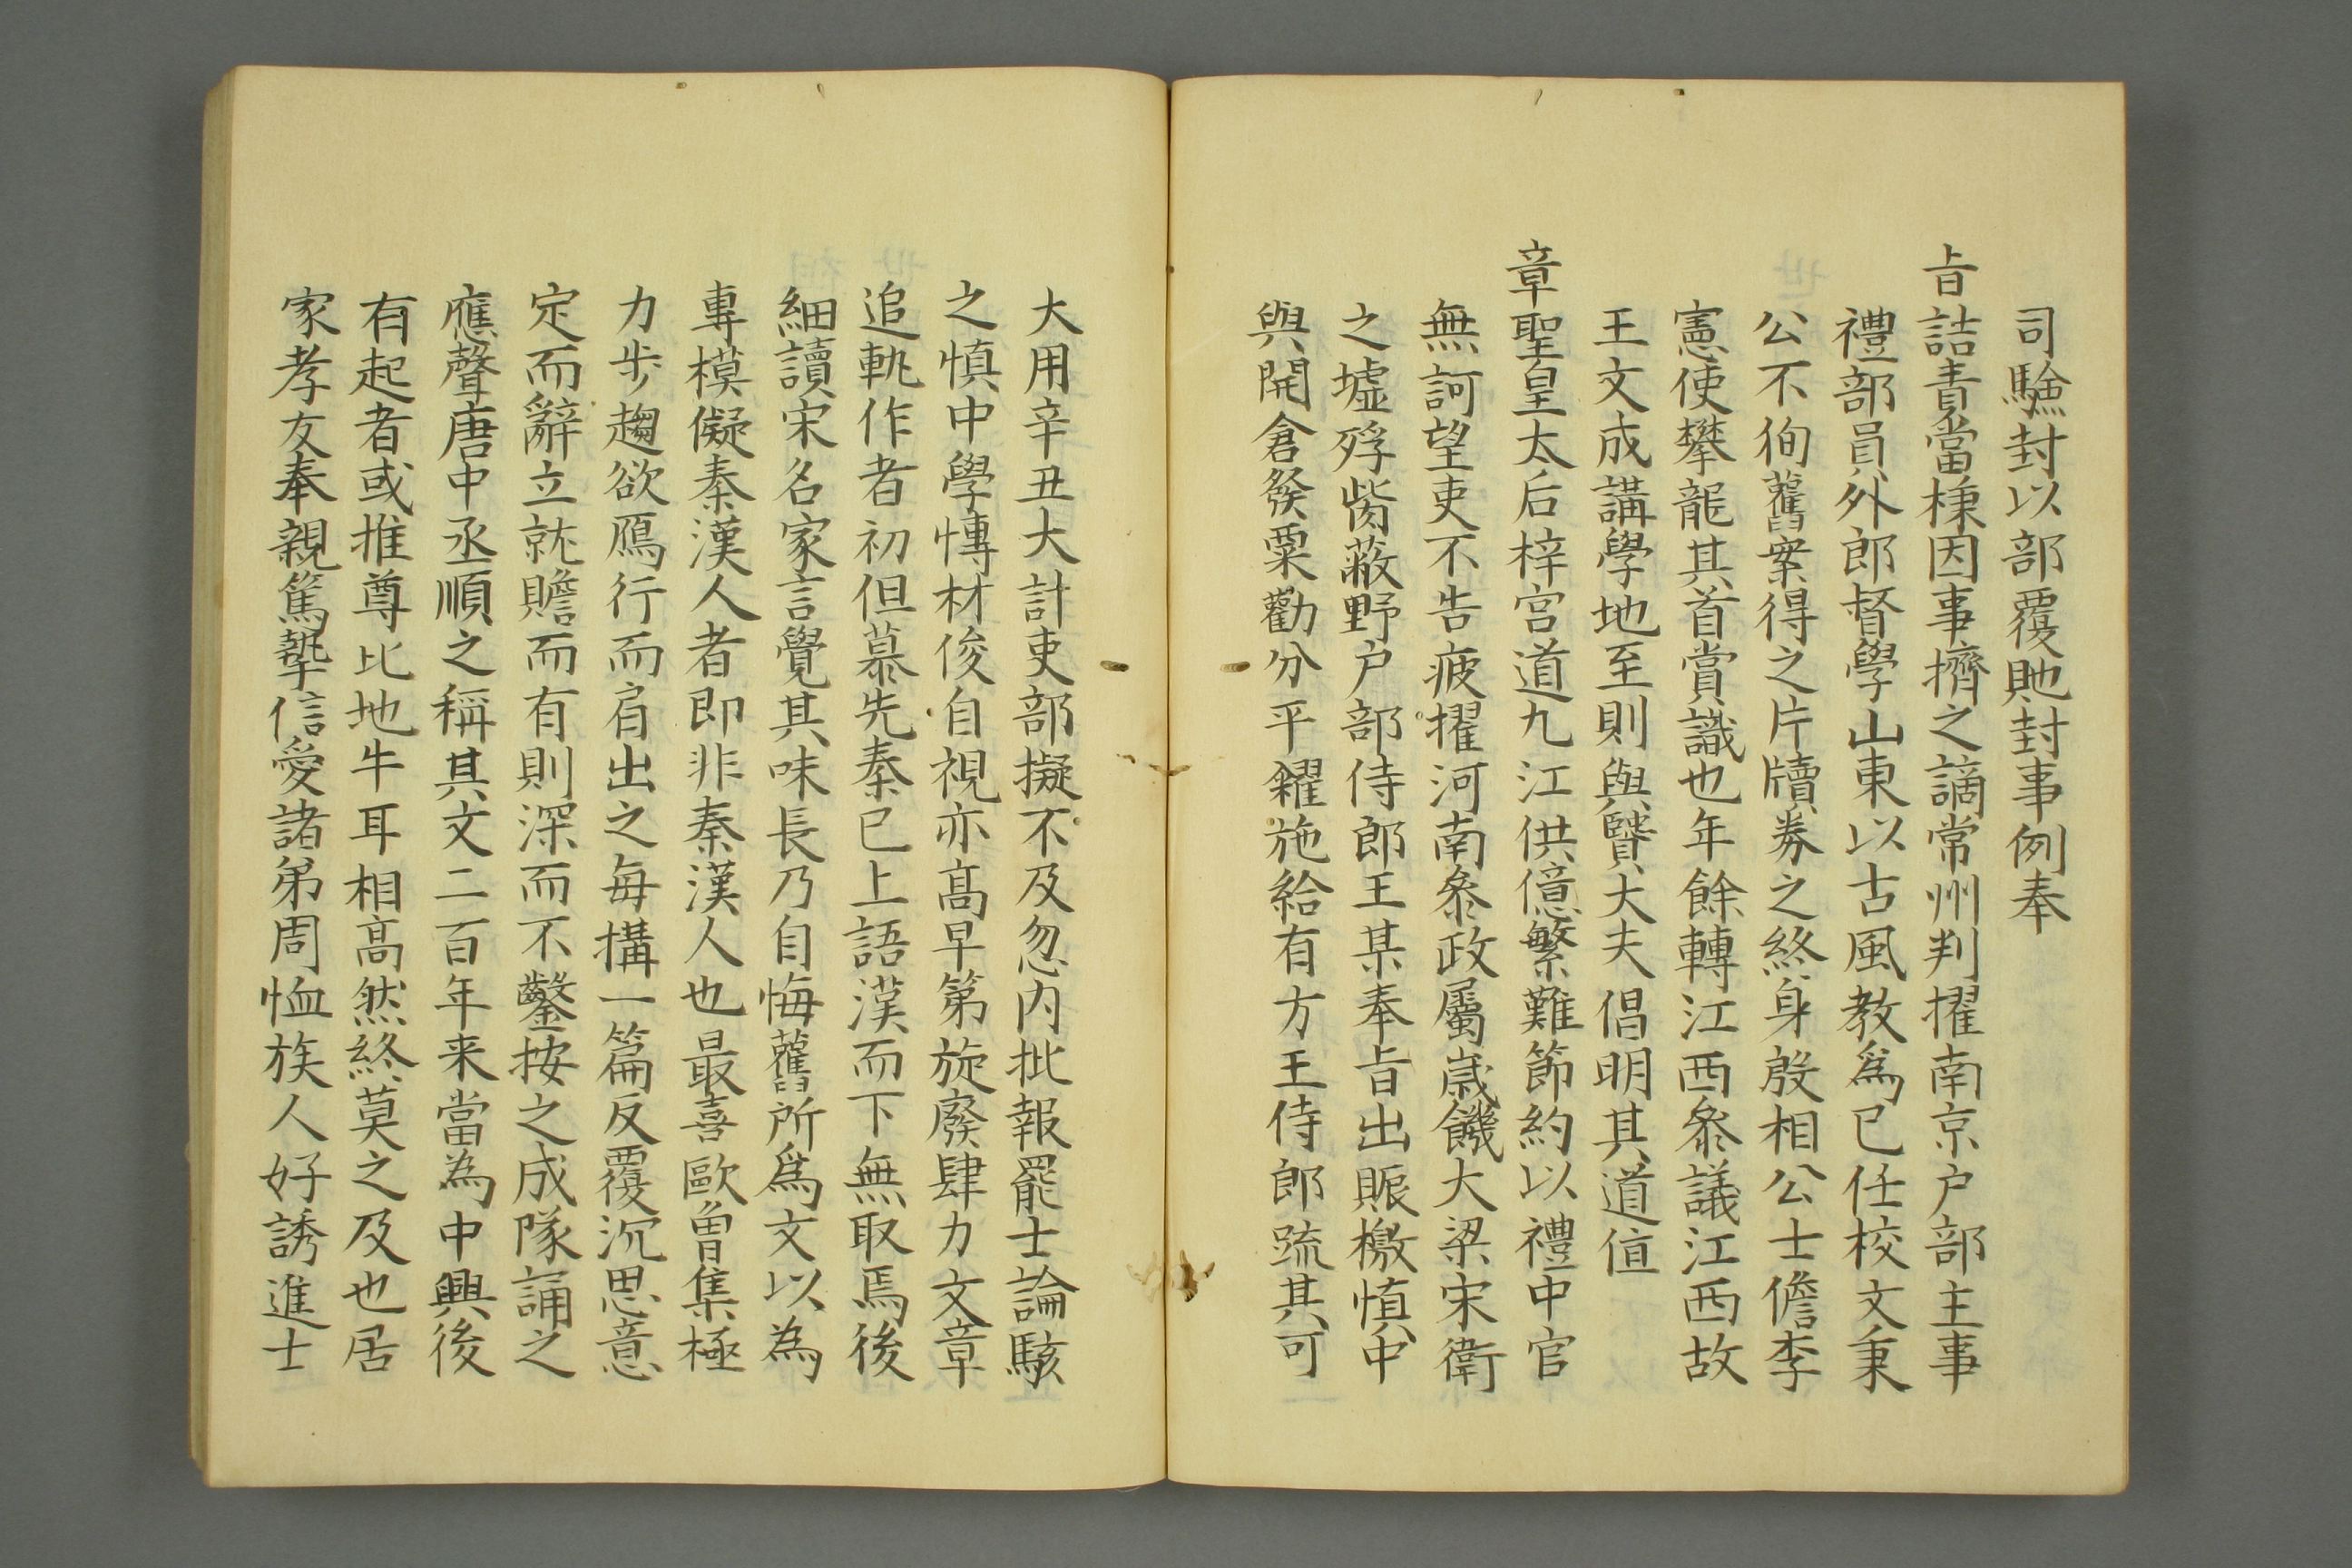 司驗封以部覆貤封事例奉
旨詰責當棟因事擠之謫常州判擢南京户部主事
禮部員外郎督學山東以古風教爲已任校文秉
公不徇舊案得之片牘券之終身殷相公士儋李
憲使攀龍其首賞識也年餘轉江西叅議江西故
王文成講學地至則與賢大夫倡明其道值
章聖皇太后梓宫道九江供億繁難節約以禮中官
無訶望吏不告疲擢河南叅政屬歲饑大梁宋衛
之墟殍胔蔽野户部侍郎王某奉旨出賑檄慎中
與開倉發粟勸分平糴施給有方王侍郎疏其可
大用辛丑大計吏部擬不及忽内批報罷士論駭
之慎中學慱材俊自視亦高早第旋廢肆力文章
追軌作者初但慕先秦已上語漢而下無取焉後
細讀宋名家言覺其味長乃自悔舊所爲文以為
專模儗秦漢人者即非秦漢人也最喜歐曾集極
力步趨欲鴈行而肩出之每搆一篇反覆沉思意
定而辭立就贍而有則深而不鑿按之成隊誦之
應聲唐中丞順之稱其文二百年来當為中興後
有起者或推尊比地牛耳相高然終莫之及也居
家孝友奉親篤摯信愛諸弟周恤族人好誘進士